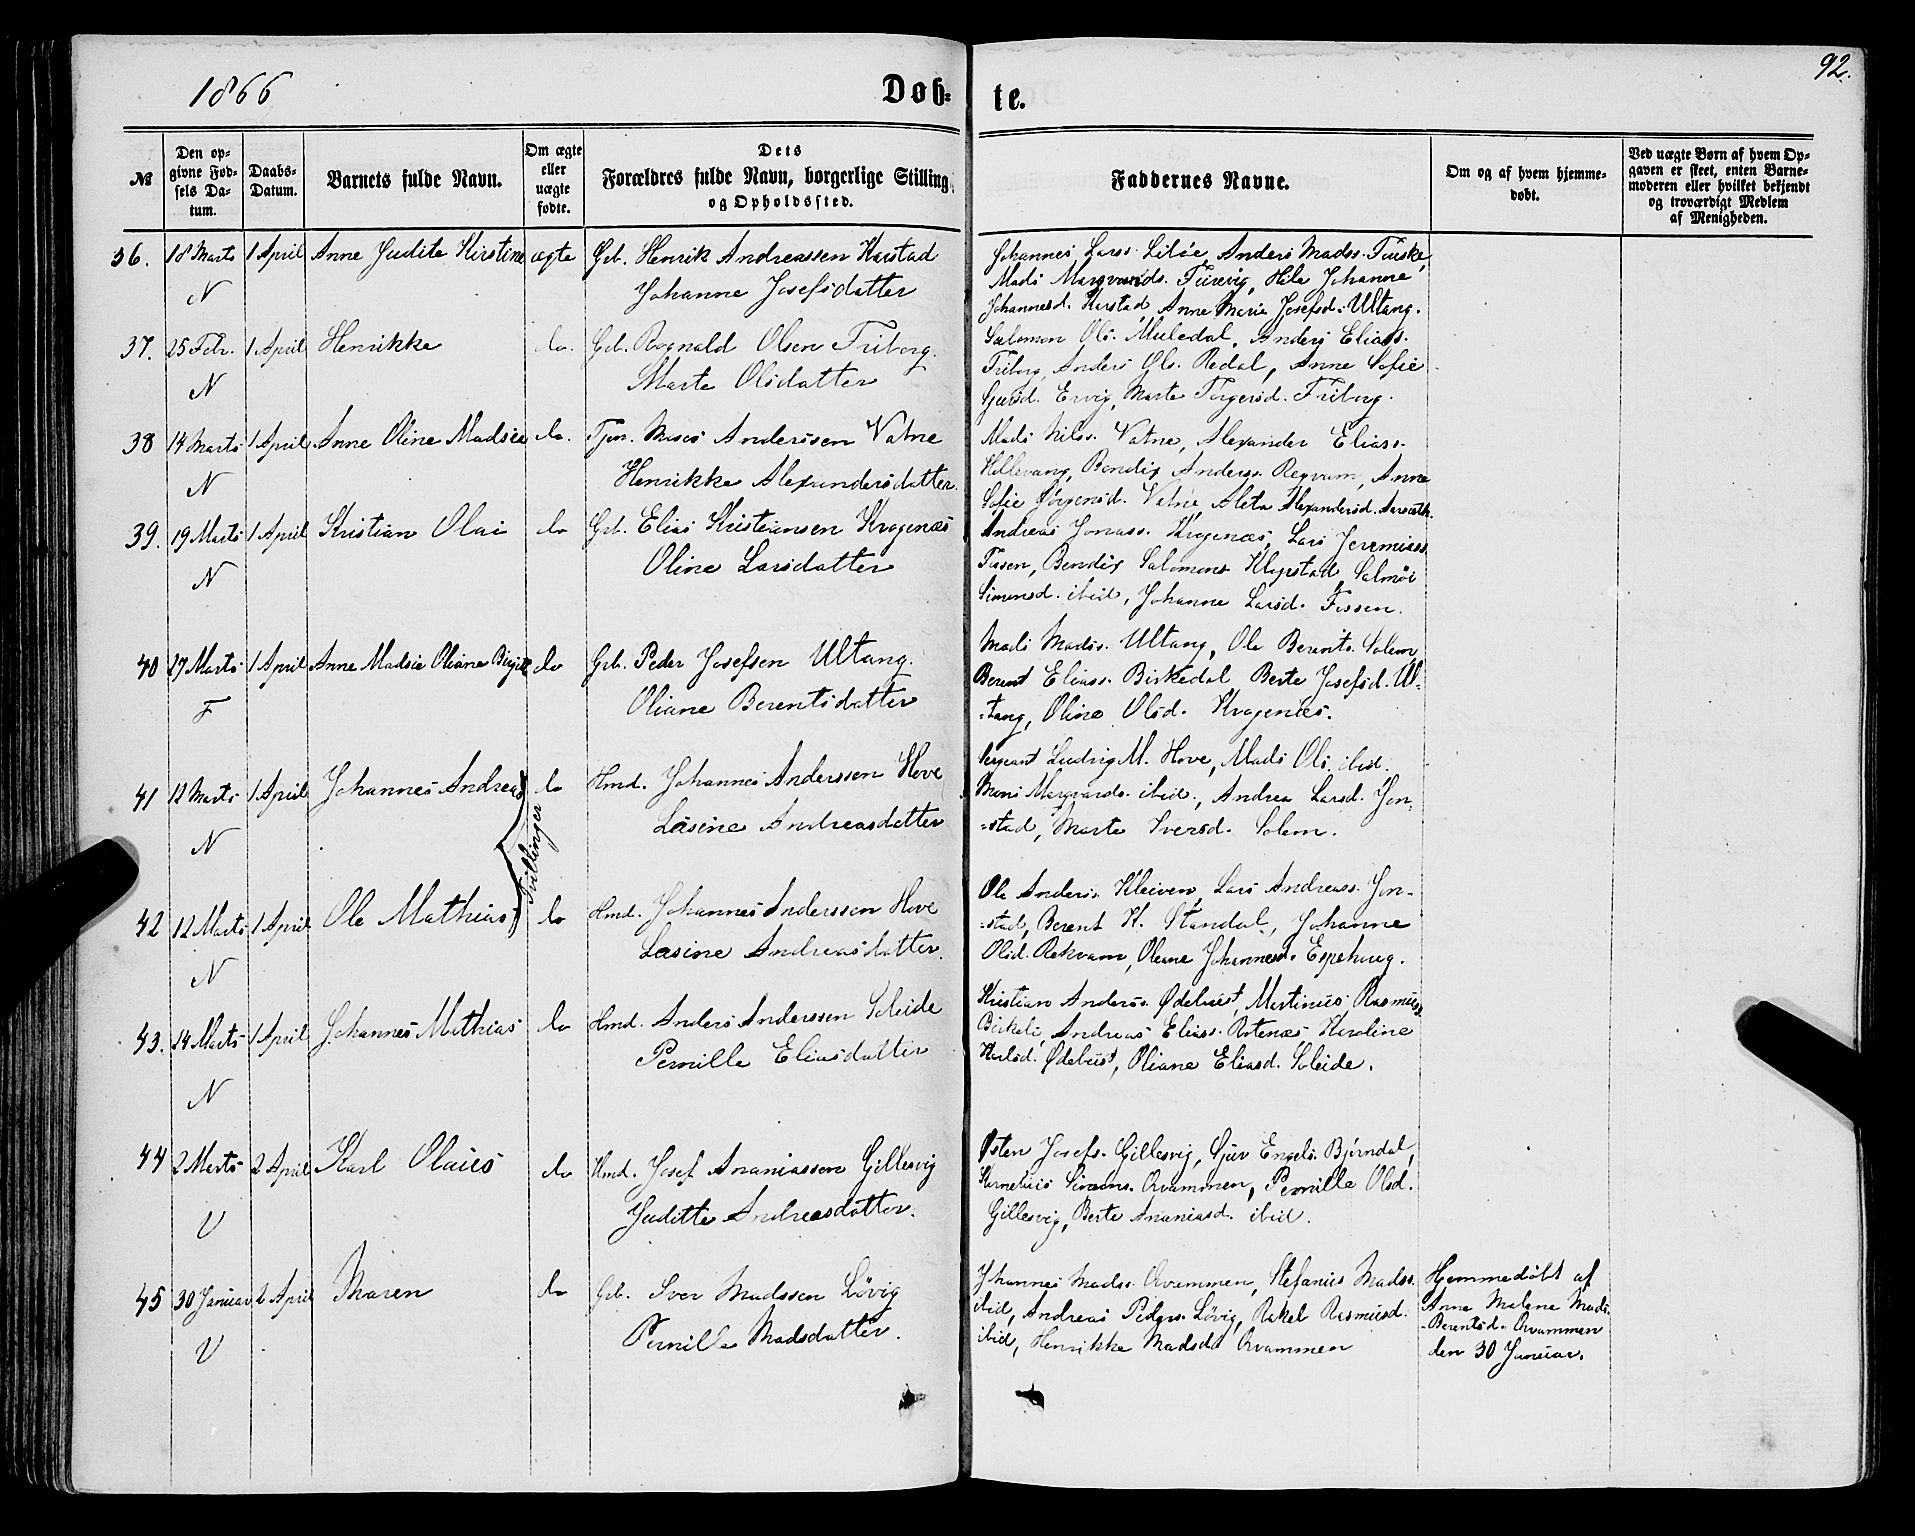 1866
Døb-
te.
92.
№
Den op-
givne Fød-
sels Da-
tum.
Daabs-
Datum.
Barnets fulde Navn.
Om ægte
eller
uægte
fødte.
Dets
Forældres fulde Navn, borgerlige Stilling
og Opholdssted.
Faddernes Navne.
Om og af hvem hjemme-
døbt.
Ved uægte Børn af hvem Op-
gaven er skeet, enten Barne-
moderen eller hvilket bekjendt
og troværdigt Medlem
af Menigheden.
36. 18 Marts 1 April Anne Judite Kirstine ægte Gb. Henrik Andreassen Karstad
N
Johanne Josefsdatter
Johannes Larss. Anders Madss. Fuske,
Mads Margvards. Johanne
Johannesd. Karstad, Anne Marie Josefsd. Ultang.
37. 25 Febr. 1 April Henrikke do. Gb. Ragnald Olsen Friborg.
N
Marte Olsdatter
Salomon Ols. Muledal, Anders Eliass.
Friborg, Anders Ols. Redal, Anne Sofie
Ervig, Marte Torgersd. Friborg.
38 14 Marts 1 April Anne Oline Madsie do. Tjen. Anderssen Vatne
N
Henrikke Alexandersdatter.
Mads Nilss. Vatne, Alexander Eliass.
Hellevang, Bendix Anderss. Anne
Sofie Jørgensd. Vatne, Aleta Alexandersd.
39. 19 Marts 1 April Kristian Olai do Gb. Elias Kristiansen Kragenæs
N
Oline Larsdatter
Andreas Jonass. Kragenæs, Lars Jeremiass.
Fossen, Bendix Salomons. Klagstad,
Simonsd. ibid, Johanne Larsd. Fossen.
40 27 Marts 1 April Anne Madsie Oliane Birgitte do Gb. Peder Josefsen Ultang.
F
Oliane Berentsdatter
Mads Madss. Ultang, Ole Berents. Solem,
Berent Eliass. Birkedal, Berte Josefsd. Ul-
-tang, Oline Olsd. Kragenæs.
41 12 Marts 1 April Johannes Andreas do Hmd. Johannes Anderssen Hove
N
Lasine Andreasdatter
Sergeant Ludvig M. Hove, Mads Ols. ibid.
Mons Margvards. ibid., Andrea Larsd. Jon-
-stad, Marte Iversd. Solem.
Tvillinger
42 12 Marts 1 April Ole Mathias do Hmd. Johannes Anderssen Hove
N
Lasine Andreasdatter.
Ole Anders. Kleiven, Lars Andreass. Jon-
-stad, Berent K. Standal, Johanne
Olsd. Rekvam, Oleane Johannesd. Espehaug.
43. 14 Marts 1 April Johannes Mathias do Hmd. Anders Anderssen Soleide
N
Pernille Eliasdatter
Kristian Anderss. Ødebust, Martinus Rasmuss.
Birkeli, Andreas Eliass. Karoline
Karlsd. Ødebust, Oliane Eliasd. Soleide.
44 2 Marts 2 April Karl Olaus do Hmd. Josef Ananiassen Gillesvig
V
Juditte Andreasdatter.
Østen Josefs. Gillesvig, Gjuv Engels. Bjørndal,
Kornelius Simons. Qvammen, Pernille Olsd.
Gillesvig, Berte Ananiasd. ibid.
45 30 Januar 2 April Maren do Gb. Iver Madssen Løvig
V
Pernille Madsdatter.
Johannes Madss. Qvammen, Stefanus Madss.
ibid, Andreas Peders. Løvig, Rakel Rasmusd.
ibid, Henrikke Madsd. Qvammen
Hjemmedøbt af
Anne Malene Mads-
-Berentsd. Qvammen
den 30 Januar.